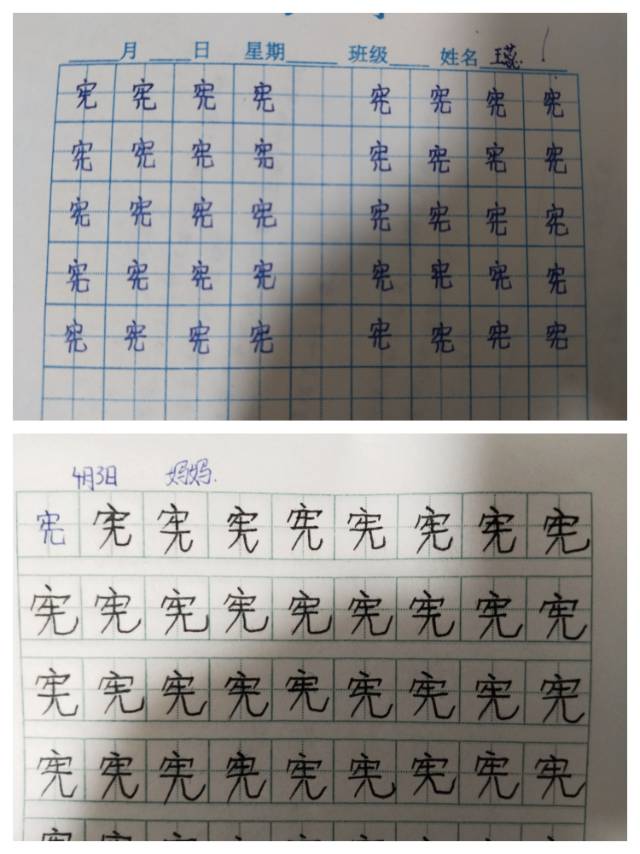 月 日 星期 班级 姓名
宪 宪 宪 宪 宪 宪 宪 宪
宪 宪 宪 宪 宪 宪 宪 宪
宪 宪 宪 宪 宪 宪 宪 宪
宪 宪 宪 宪 宪 宪 宪 宪
宪 宪 宪 宪 宪 宪 宪 宪
4月3日 妈妈.
宪 宪 宪 宪 宪 宪 宪 宪 宪
宪 宪 宪 宪 宪 宪 宪 宪 宪
宪 宪 宪 宪 宪 宪 宪 宪 宪
宪 宪 宪 宪 宪 宪 宪 宪 宪